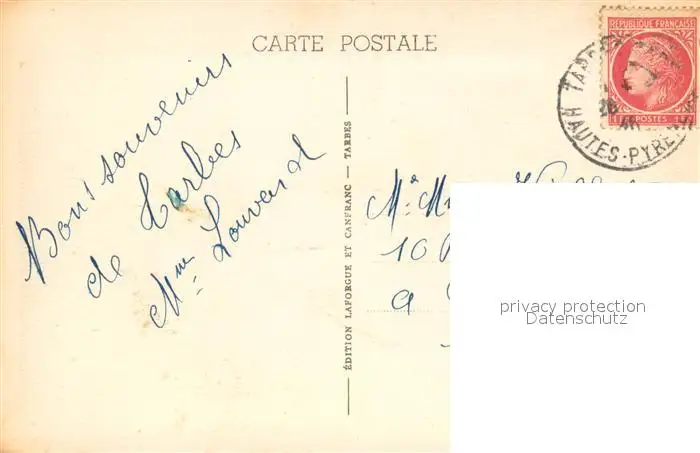 CARTE POSTALE
Bons souvenirs
de Tarbes
Mme Louvard
ÉDITION LAFORGUE ET CANFRANC — TARBES
RÉPUBLIQUE FRANÇAISE
POSTES
TARBES
26
HAUTES-PYRÉNÉES
10
a
privacy protection
Datenschutz